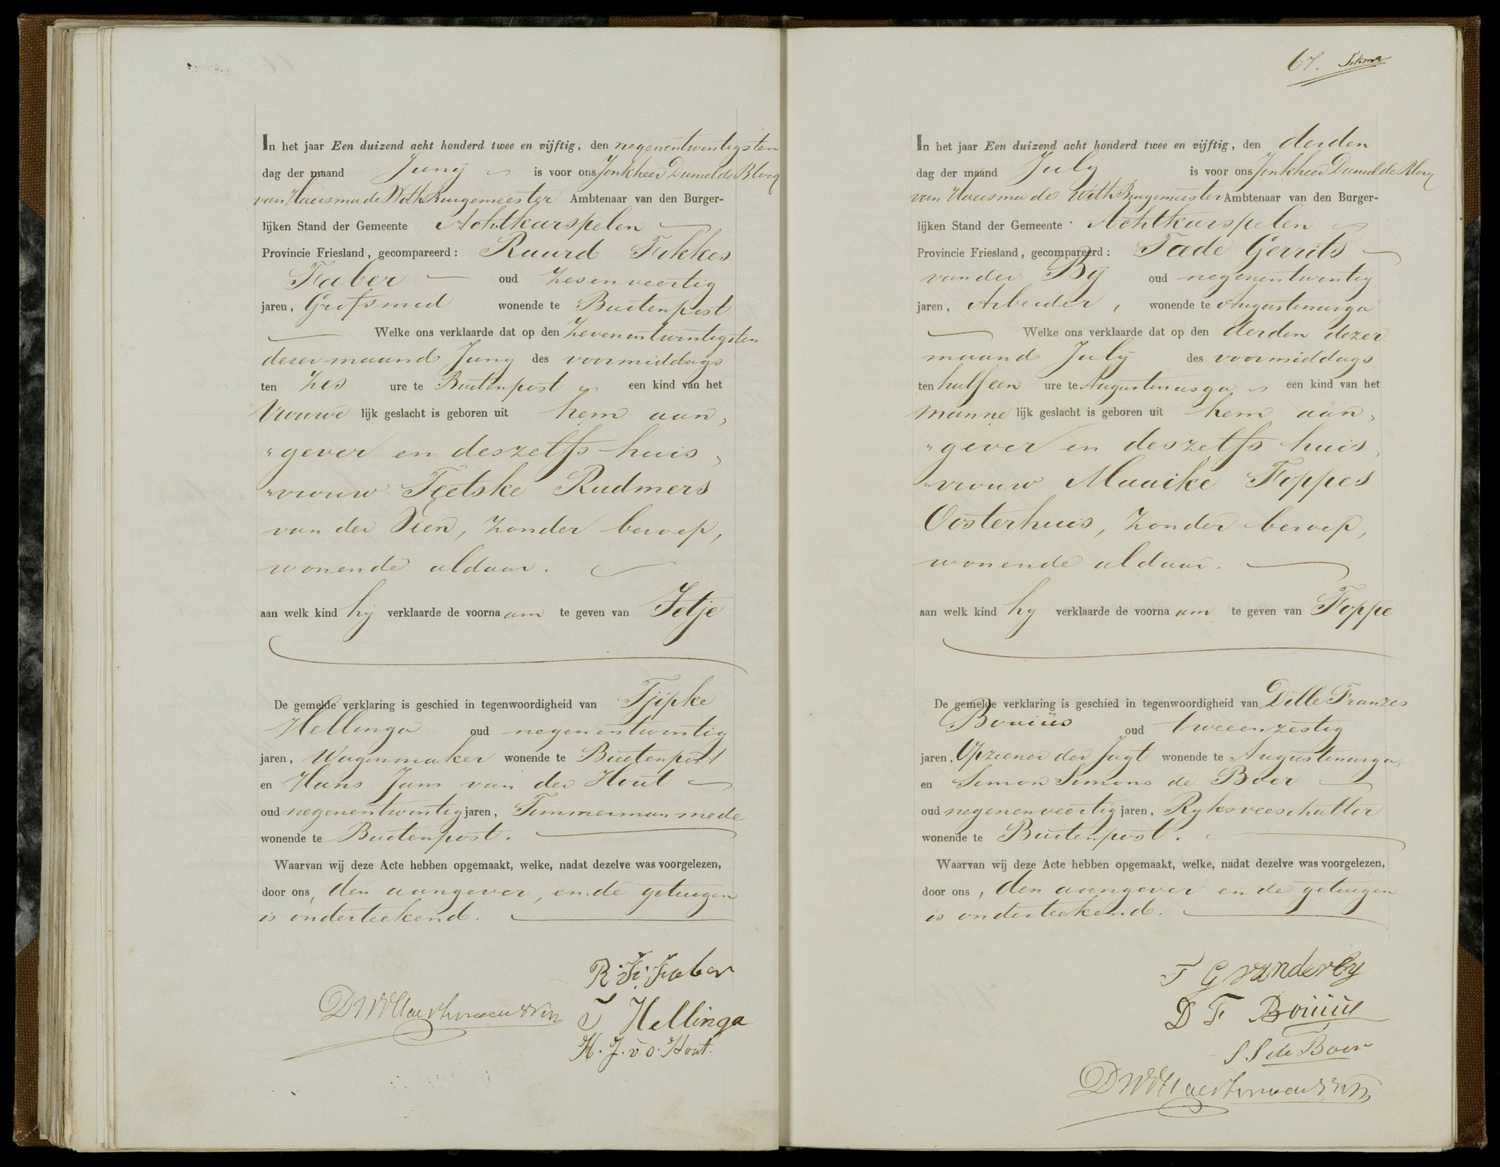 In het jaar Een duizend acht honderd twee en vijftig, den negenentwintigsten
dag der maand Juny is voor ons Jonkheer Daniel de Blocq
van Haersma de With Burgemeester Ambtenaar van den Burger-
lijken Stand der Gemeente Achtkarspelen
Provincie Friesland, gecompareerd: Ruurd Fokkes
Faber oud zesenveertig
jaren, Grofsmid wonende te Buitenpost
Welke ons verklaarde dat op den zevenentwintigsten
dezer maand Juny des voormiddags
ten zes ure te Buitenpost een kind van het
Vrouwe lijk geslacht is geboren uit hem aan-
gever en deszelfs huis-
vrouw Tjetske Rudmers
van der Veen, zonder beroep,
wonende aldaar.
aan welk kind hy verklaarde de voorna am te geven van Jetje
De gemelde verklaring is geschied in tegenwoordigheid van Tjipke
Hellinga oud negenentwintig
jaren, Wagenmaker wonende te Buitenpost
en Hans Jans van der Hout
oud negenentwintig jaren, Timmerman mede
wonende te Buitenpost.
Waarvan wij deze Acte hebben opgemaakt, welke, nadat dezelve was voorgelezen,
door ons, den aangever, en de getuigen
is onderteekend.
R. F. Faber
T Hellinga
H. J. v. d. Hout.
67.
In het jaar Een duizend acht honderd twee en vijftig, den derden
dag der maand July is voor ons Jonkheer Daniel de Blocq
van Haersma de With Burgemeester Ambtenaar van den Burger-
lijken Stand der Gemeente Achtkarspelen
Provincie Friesland, gecompareerd: Tade Gerrits
van der By oud negenentwintig
jaren, Arbeider, wonende te Augustinusga
Welke ons verklaarde dat op den derden dezer
maand July des voormiddags
ten half een ure te Augustinusga een kind van het
Manne lijk geslacht is geboren uit hem aan-
gever en deszelfs huis-
vrouw Maaike Foppes
Oosterhuis, zonder beroep,
wonende aldaar.
aan welk kind hy verklaarde de voorna am te geven van Foppe
De gemelde verklaring is geschied in tegenwoordigheid van Dille Franzes
Bouius oud tweeenzestig
jaren, Opziener der Jagt wonende te Augustinusga
en Simon Simons de Boer
oud negenenveertig jaren, Ryksveeschatter
wonende te Buitenpost.
Waarvan wij deze Acte hebben opgemaakt, welke, nadat dezelve was voorgelezen,
door ons, den aangever en de getuigen
is onderteekend.
T G vanderby
D F Bouius
S S de Boer